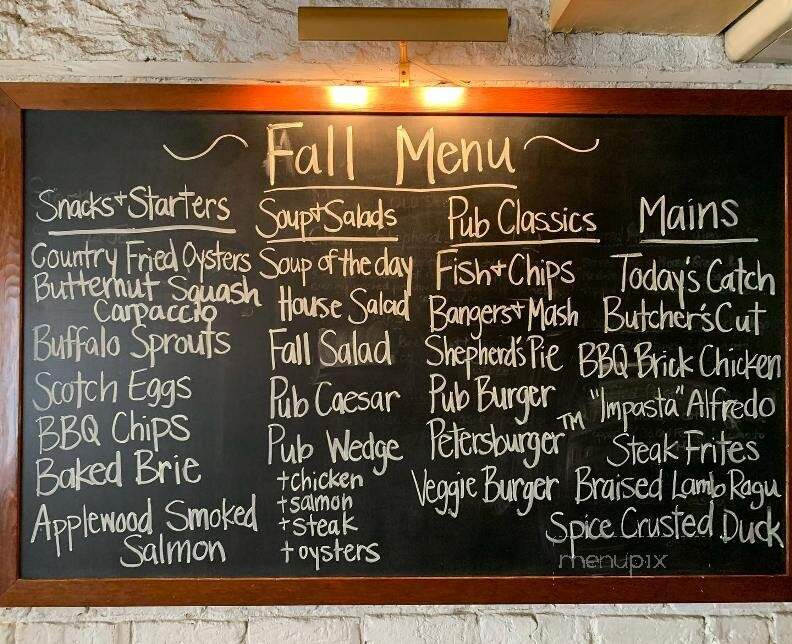 Fall Menu
Snacks + Starters
Country Fried Oysters
Butternut Squash
Carpaccio
Buffalo Sprouts
Scotch Eggs
BBQ Chips
Baked Brie
Applewood Smoked
Salmon
Soup + Salads
Soup of the day
House Salad
Fall Salad
Pub Caesar
Pub Wedge
+ chicken
+ salmon
+ steak
+ oysters
Pub Classics
Fish + Chips
Bangers + Mash
Shepherd's Pie
Pub Burger
Petersburger™
Veggie Burger
Mains
Today's Catch
Butcher's Cut
BBQ Brick Chicken
"Impasta" Alfredo
Steak Frites
Braised Lamb Ragu
Spice Crusted Duck
menupix